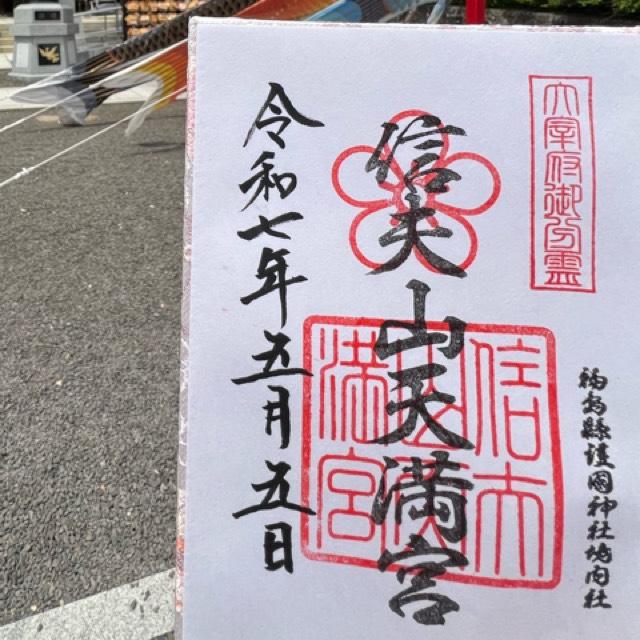 太宰府御分霊
福島縣護國神社境内社
信夫山天満宮
信夫山天満宮
令和七年五月五日